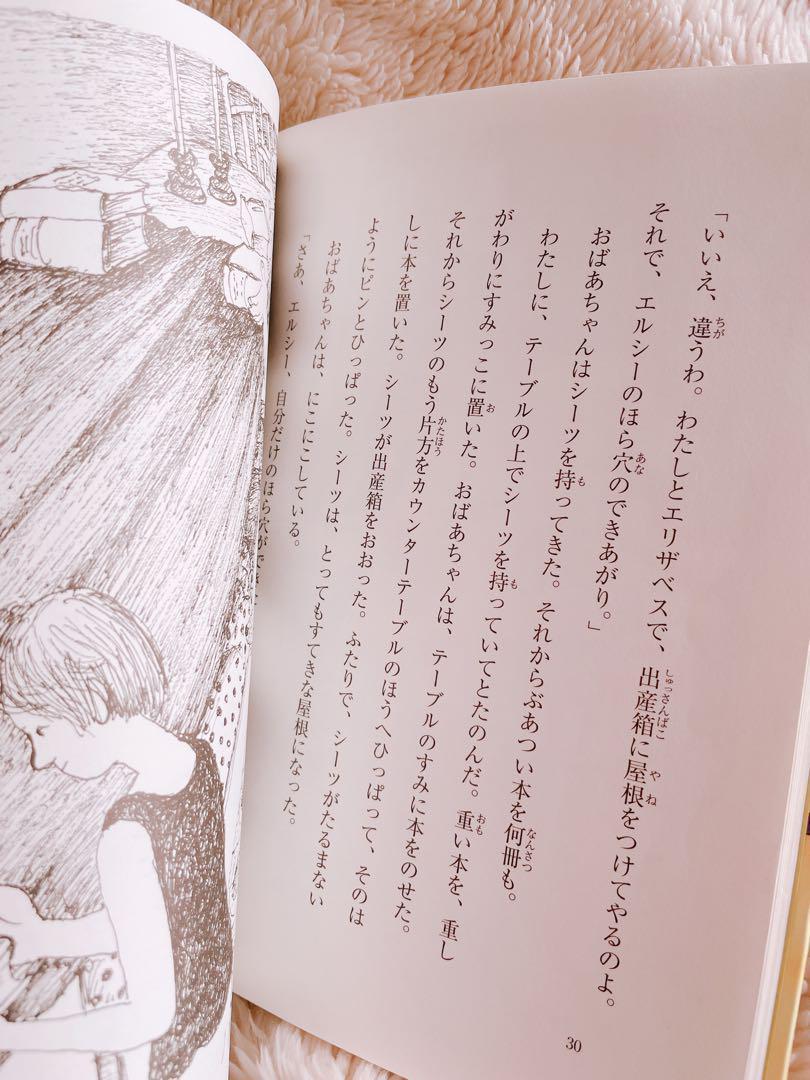 「いいえ、違うわ。わたしとエリザベスで、出産箱に屋根をつけてやるのよ。
それで、エルシーのほら穴のできあがり。」
おばあちゃんはシーツを持ってきた。それからぶあつい本を何冊も。
わたしに、テーブルの上でシーツを持っていてとたのんだ。重い本を、重し
がわりにすみっこに置いた。おばあちゃんは、テーブルのすみに本をのせた。
それからシーツのもう片方をカウンターテーブルのほうへひっぱって、そのは
しに本を置いた。シーツが出産箱をおおった。ふたりで、シーツがたるまない
ようにピンとひっぱった。シーツは、とってもすてきな屋根になった。
おばあちゃんは、にこにこしている。
「さあ、エルシー、自分だけのほら穴ができ
30